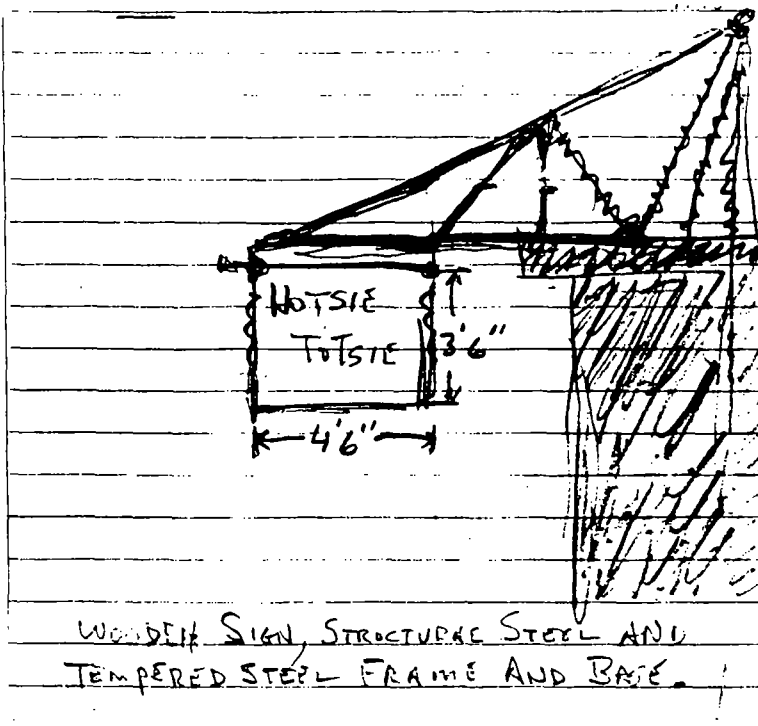 HOTSIE
TOTSIE
3'6"
4'6"
WOODEN SIGN, STRUCTURAL STEEL AND
TEMPERED STEEL FRAME AND BASE.